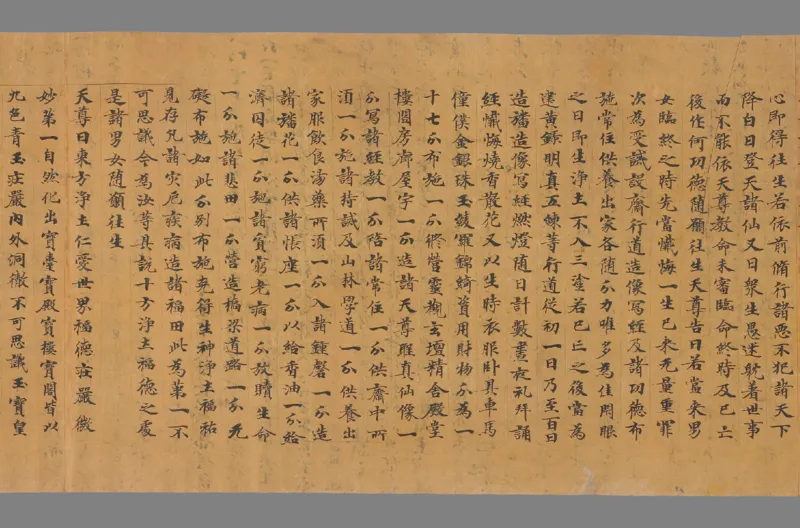 心即得往生若依前脩行諸惡不犯諸天下
降白日登天諸仙又曰衆生愚迷躭着世事
而不能依天尊教命未審臨命終時及已亡
後作何功德隨願往生天尊告曰若當来男
女臨終之時先當懺悔一生已来无量重罪
次為受誡設齋行道造像寫經及諸功德布
施常住供養出家各隨分力唯多為佳閇眼
之日即生淨土不入三塗若已亡之後當為
建黄錄明真五練等行道從初一日乃至百日
造旛造像寫經燃燈随日計數晝夜礼拜誦
經懺悔燒香散花又以生時衣服卧具車馬
僮僕金銀珠玉綾羅錦綺資用財物分為一
十七分布施一分修營靈觀玄壇精舍殿堂
樓閣房廊屋宇一分造諸天尊聖真仙像一
分寫諸經教一分陪諸常住一分供齋中所
須一分施諸持誡及山林學道一分供養出
家服飲食湯藥所須一分入諸鍾磬一分造
諸旛花一分供諸帳座一分以給香油一分給
濟囚徒一分施諸貧窮老病一分放贖生命
一分施諸悲田一分營造橋梁道路一分无
礙布施如此分别布施竟得生神淨土福祐
見存凡諸灾厄疾病造諸福田此為第一不
可思議今為汝等具說十方淨土福德之處
是諸男女随願往生
天尊曰東方淨土仁愛世界福德莊嚴微
妙第一自然化出寳臺寳殿寳樓寳閣皆以
九色青玉莊嚴内外洞徹不可思議玉寳皇